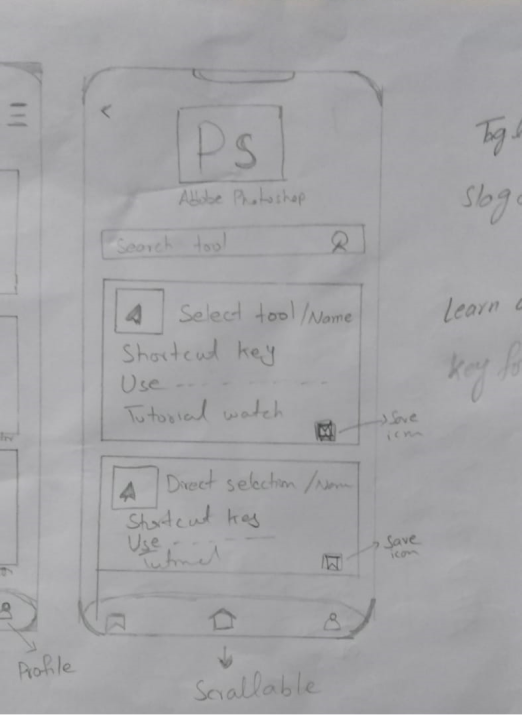 Ps
Adobe Photoshop
Search tool
Select tool/Name
Shortcut key
Use
Tutorial watch
Save
icon
Direct selection /Nam
Shortcut key
Use
Save
icon
Profile
Scrallable
Tag
Slog
Learn
key fo